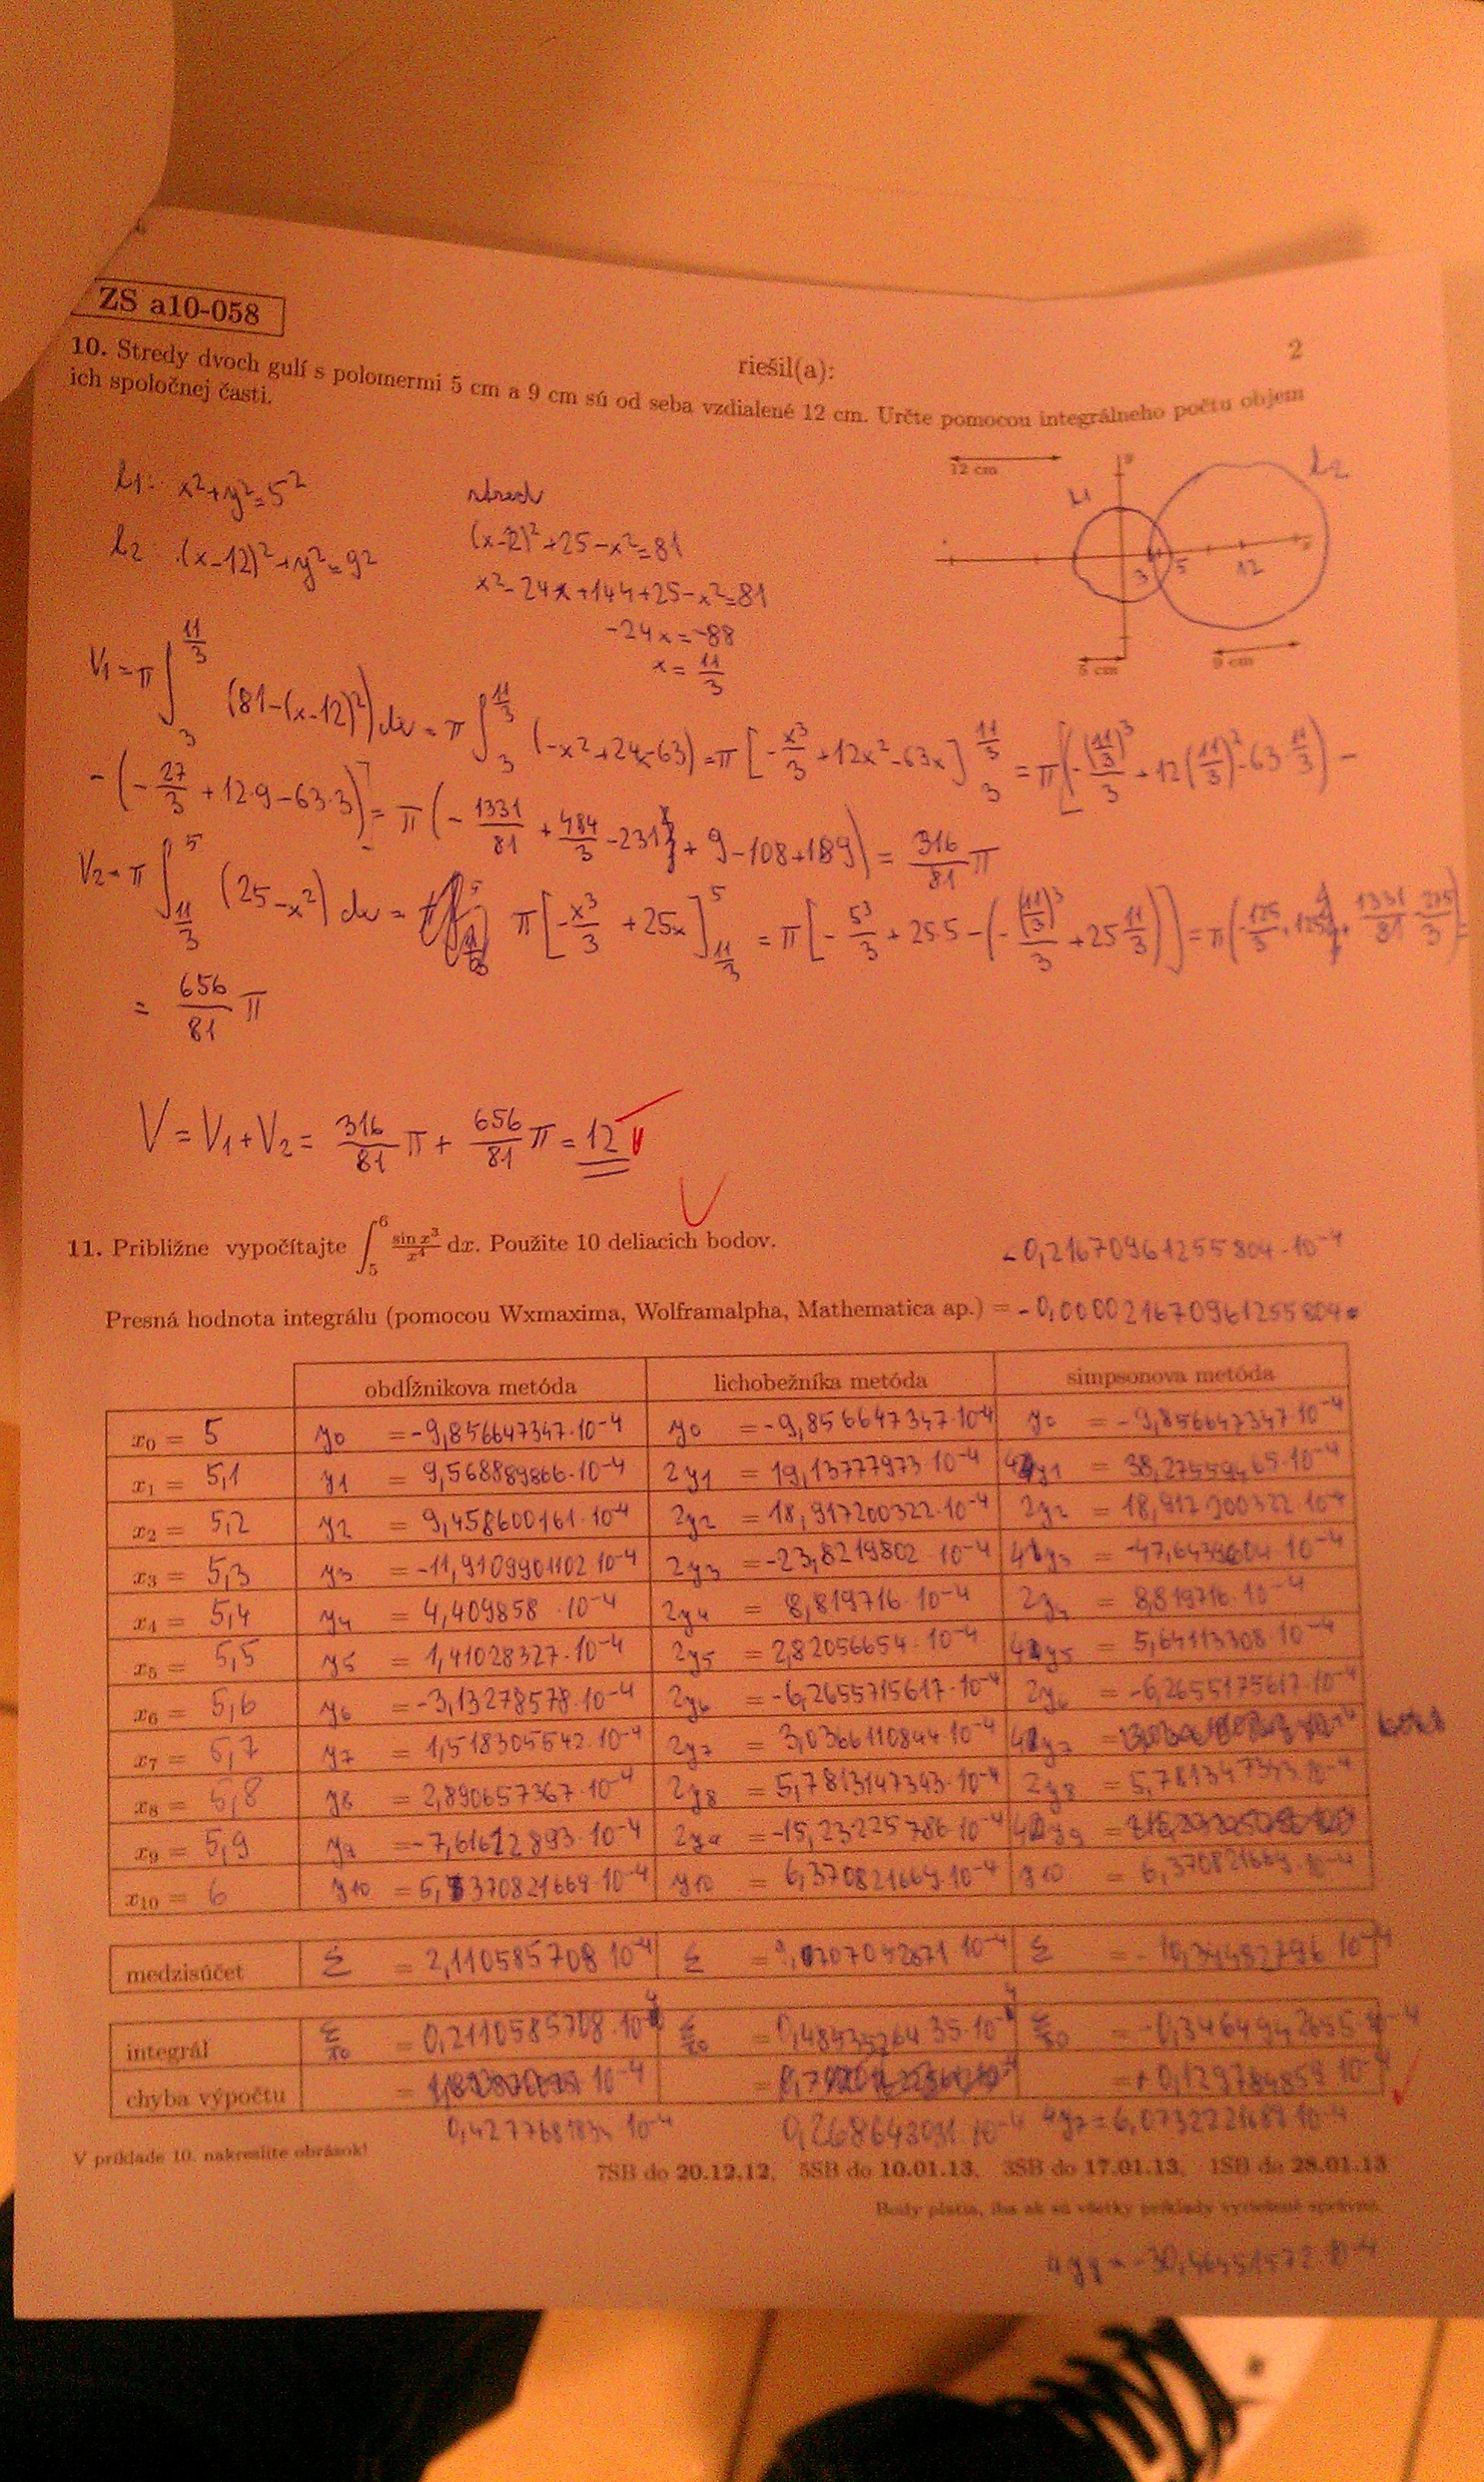 ZS a10-058
riešil(a):
2
10. Stredy dvoch gulí s polomermi 5 cm a 9 cm sú od seba vzdialené 12 cm. Určte pomocou integrálneho počtu objem
ich spoločnej časti.
12 cm
k1: x²+y²=5²
k2: (x-12)²+y²=9²
k2
3 5 12
5 cm
9 cm
x²-24x+144+25-x²=81
-24x=-88
x= 11/3
V1=π∫ 3 11/3 (81-(x-12)²)dx = π∫ 3 11/3 (-x²+24x-63) = π[-x³/3+12x²-63x] 3 11/3 = π[(-(11/3)³/3+12(11/3)²-63 11/3)-
-(-27/3+12·9-63·3)]= π(-1331/81+484/3-231+9-108+189)= 316/81 π
V2=π∫ 11/3 5 (25-x²) dx = π[-x³/3+25x] 11/3 5 = π[-5³/3+25·5-(-(11/3)³/3+25 11/3)]=π(-125/3+125+1331/81-275/3)=
= 656/81 π
V=V1+V2= 316/81 π+ 656/81 π= 12π
11. Približne vypočítajte ∫ 5 6 sin x³/x⁴ dx. Použite 10 deliacich bodov.
-0,216709961255804·10⁻⁴
Presná hodnota integrálu (pomocou Wxmaxima, Wolframalpha, Mathematica ap.) = -0,0000216709961255804
obdĺžnikova metóda lichobežníka metóda simpsonova metóda
x0 = 5 y0 =-9,856647347·10⁻⁴ y0 =-9,856647347·10⁻⁴ y0 =-9,856647347·10⁻⁴
x1 = 5,1 y1 = 9,568889866·10⁻⁴ 2y1 = 19,13777973·10⁻⁴ 4y1 = 38,27559465·10⁻⁴
x2 = 5,2 y2 = 9,458600161·10⁻⁴ 2y2 = 18,917200322·10⁻⁴ 2y2 = 18,917200322·10⁻⁴
x3 = 5,3 y3 =-11,9109901102·10⁻⁴ 2y3 =-23,8219802·10⁻⁴ 4y3 = -47,6439604·10⁻⁴
x4 = 5,4 y4 = 4,409858·10⁻⁴ 2y4 = 8,819716·10⁻⁴ 2y4 = 8,819716·10⁻⁴
x5 = 5,5 y5 = 1,41028327·10⁻⁴ 2y5 = 2,82056654·10⁻⁴ 4y5 = 5,64113308·10⁻⁴
x6 = 5,6 y6 =-3,13278578·10⁻⁴ 2y6 =-6,2655715617·10⁻⁴ 2y6 = -6,2655175617·10⁻⁴
x7 = 5,7 y7 = 1,518305542·10⁻⁴ 2y7 = 3,0366110844·10⁻⁴ 4y7 =
x8 = 5,8 y8 = 2,890657367·10⁻⁴ 2y8 = 5,7813147343·10⁻⁴ 2y8 = 5,781347343·10⁻⁴
x9 = 5,9 y9 =-7,61612893·10⁻⁴ 2y9 =-15,23225786·10⁻⁴ 4y9 =
x10 = 6 y10 = 370821669·10⁻⁴ y10 = 6,370821669·10⁻⁴ y10 = 6,370821669·10⁻⁴
medzisúčet Σ = 2,110585708·10⁻⁴ Σ Σ
integrál = 0,2110585708·10⁻⁴
chyba výpočtu =+0,129784859·10⁻⁴
0,268643031·10⁻⁴ 4y7=6,073222168·10⁻⁴
V príklade 10. nakreslite obrázok!
7SB do 20.12.12, 5SB do 10.01.13, 3SB do 17.01.13, 1SB do 28.01.13
Body platia, iba ak sú všetky príklady vyriešené správne.
4y9=-30,46451572·10⁻⁴